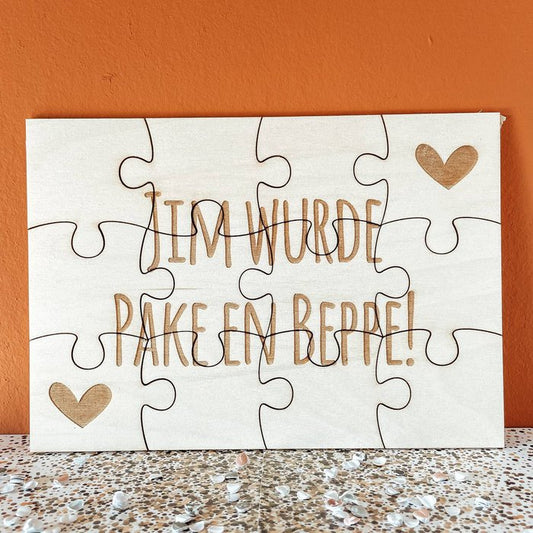 Jim wurde
Pake en Beppe!